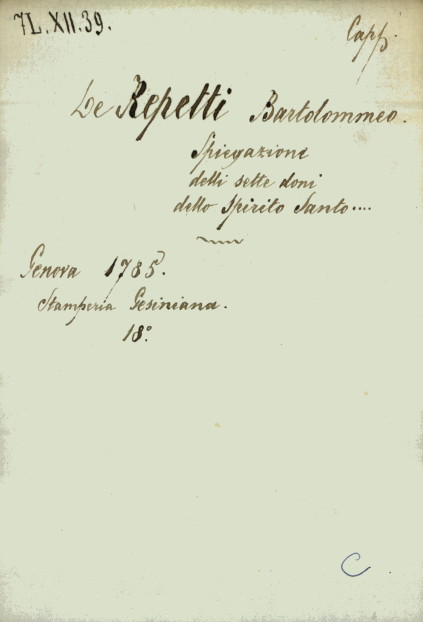 7L.XII.39.
Capp.
De Repetti Bartolommeo.
Spiegazione
delli sette doni
dello Spirito Santo....
Genova 1785.
Stamperia Gesiniana.
18°.
C